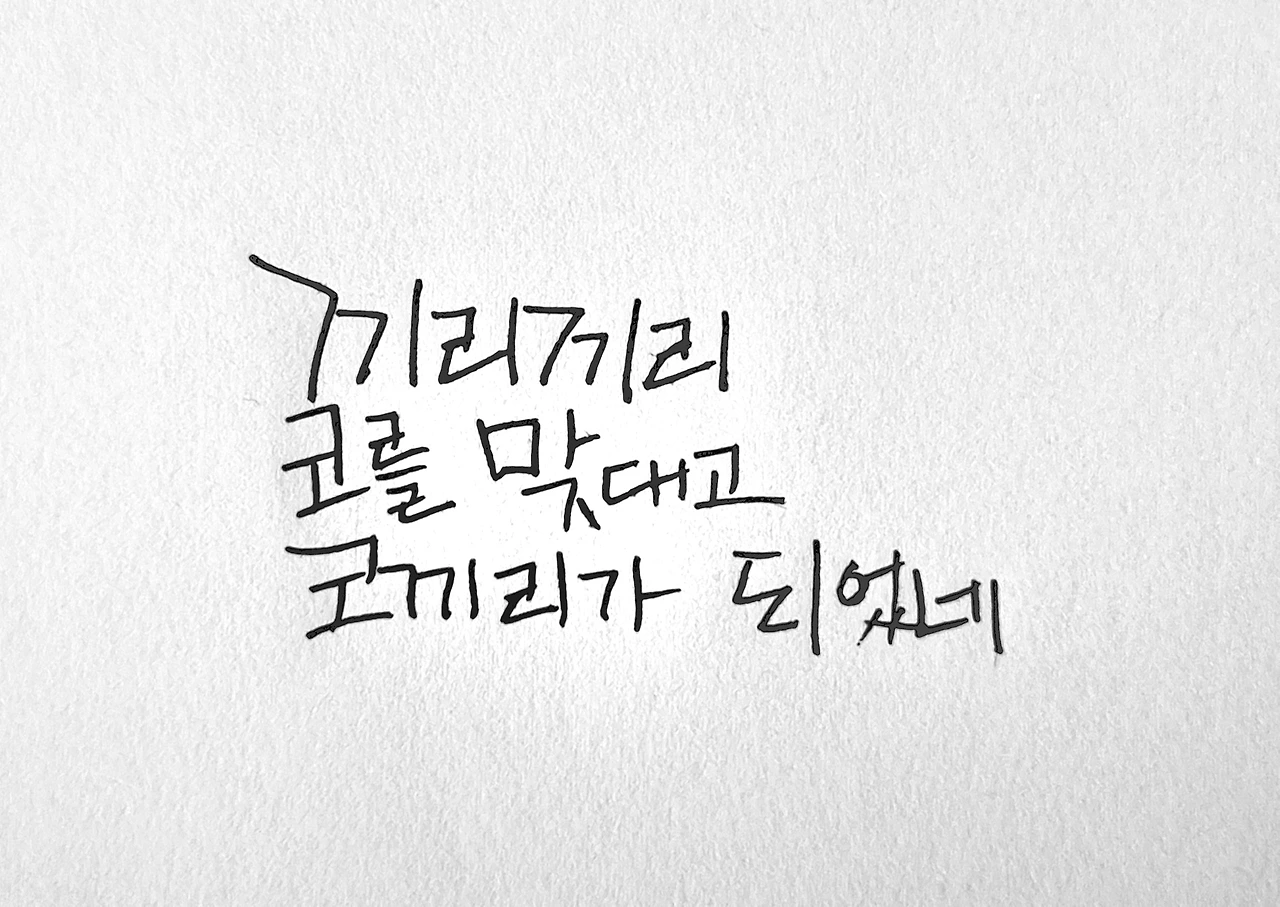 끼리끼리
코를 맞대고
코끼리가 되었네